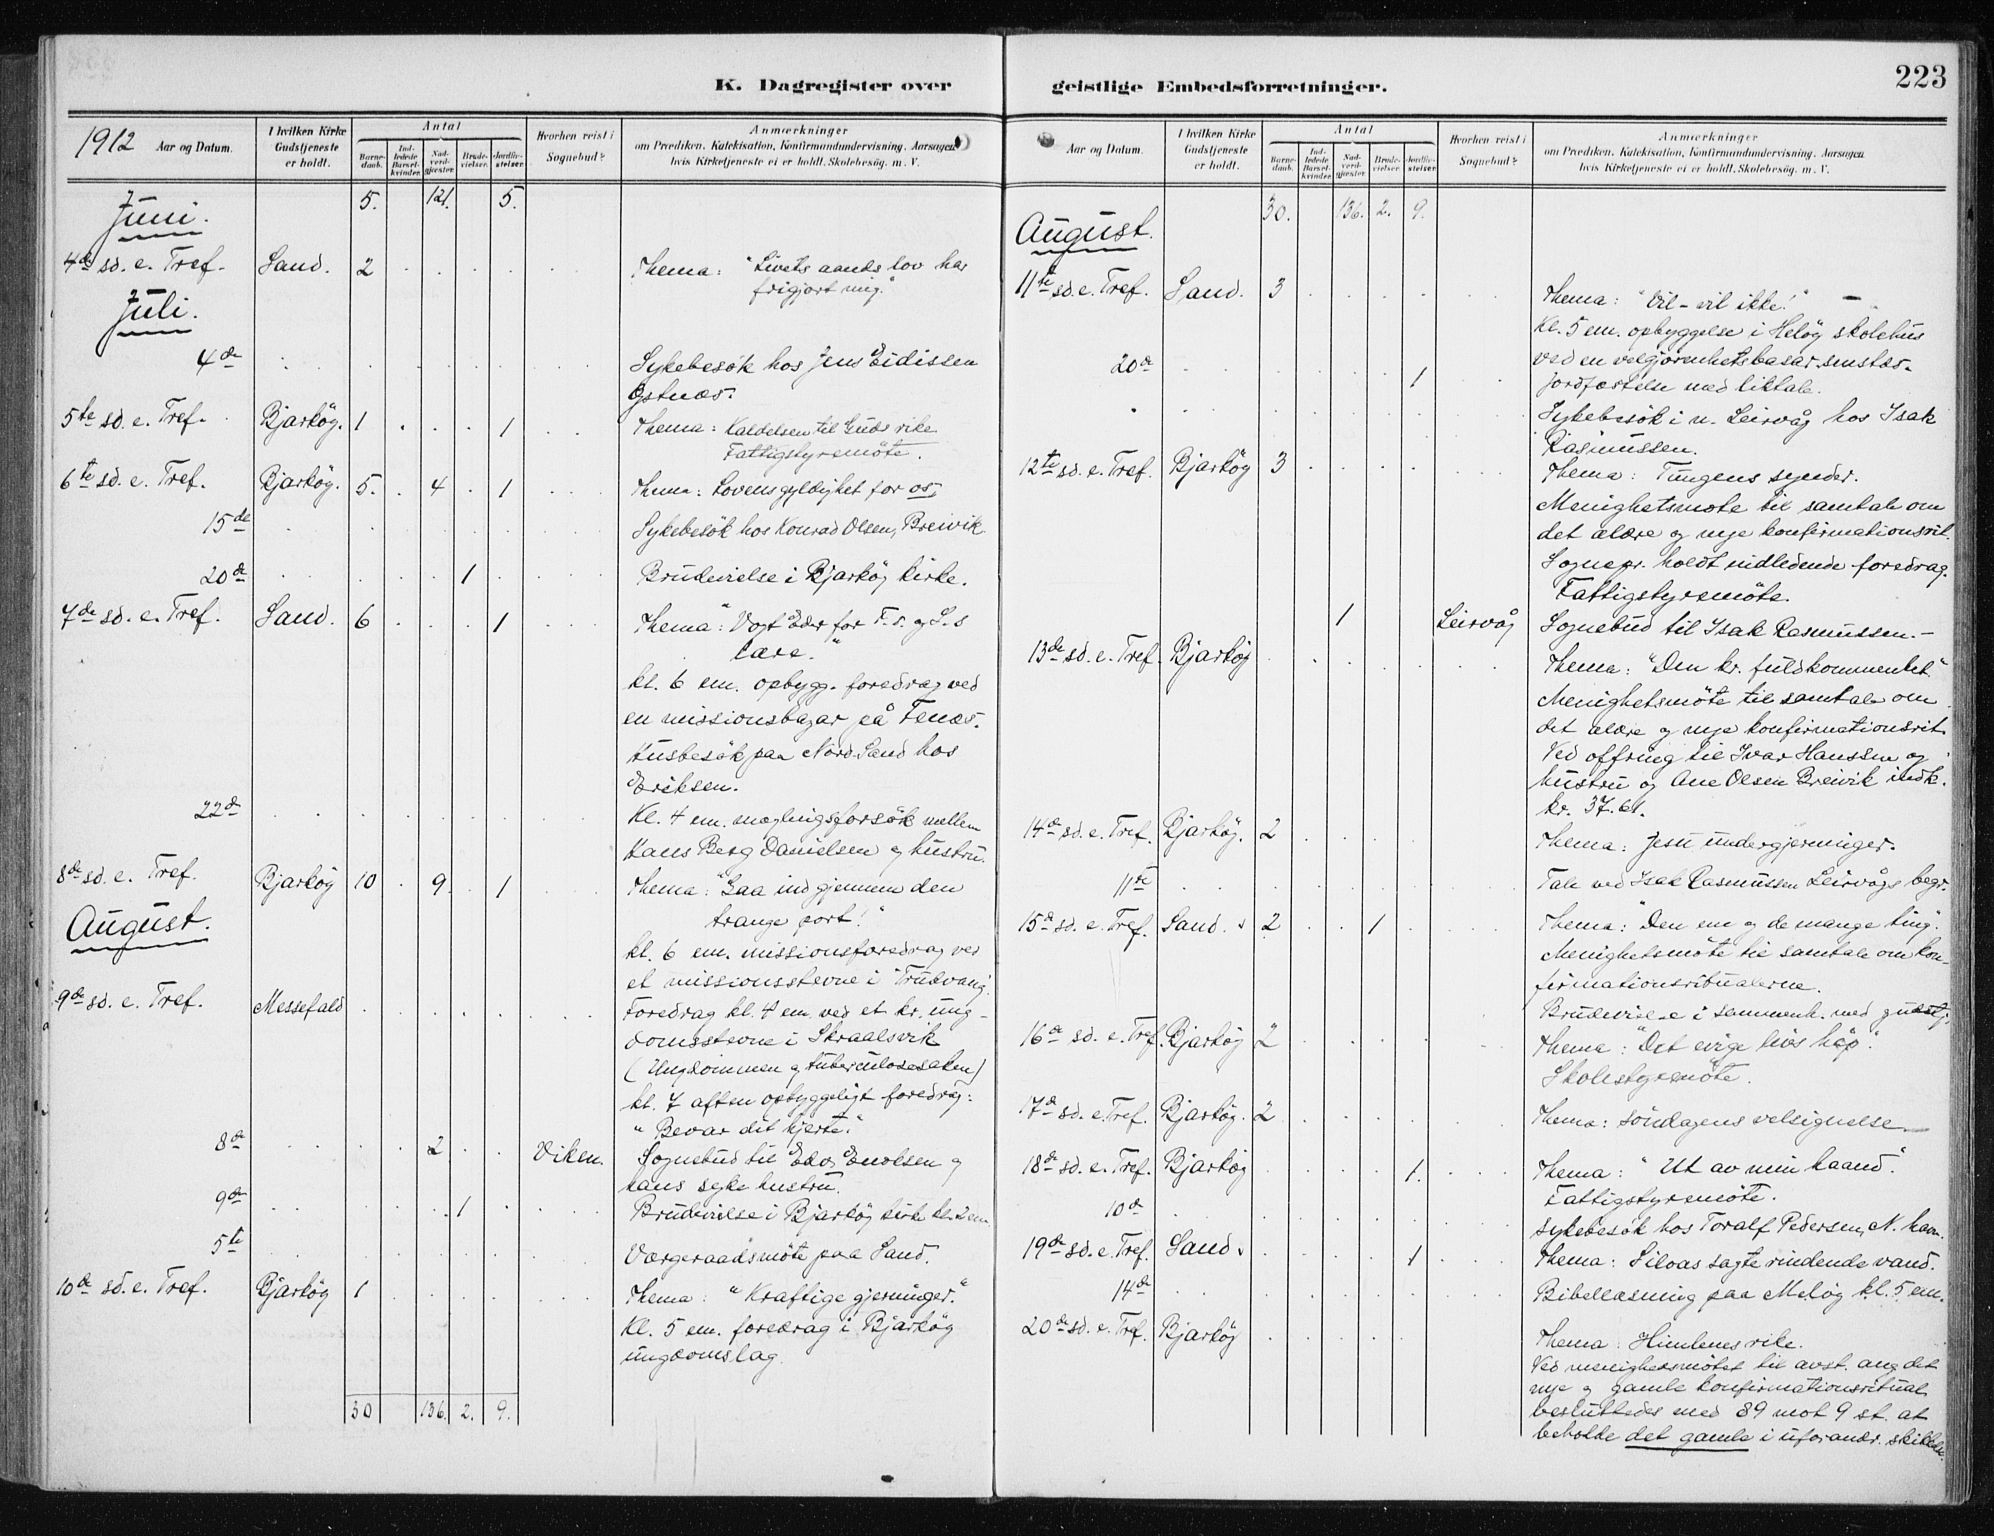 K. Dagregister over
1912 Aar og Datum.
I hvilken Kirke Gudstjeneste er holdt.
Antal
Barnedaab.
Indledede Barselkvinder.
Nadverdgjæster.
Brudevielser.
Jordfæstelser.
Hvorhen reist i Sognebud?
Anmærkninger
om Prædiken. Katekisation, Konfirmandundervisning. Aarsagen,
hvis Kirketjeneste ei er holdt. Skolebesøg. m. V.
Juni. 5. 121. 5.
4de sd. e. Tref. Sand. 2 Thema: "Livets aands lov har
frigjort mig."
Juli.
4de Sykebesök hos Jens Eidissen
5te sd. e. Tref. Bjarköy. 1 1 Thema: Kaldelsen til Guds rike
Fattigstyremöte.
6te sd. e. Tref. Bjarköy. 5. 4 1 Thema: Lovens gyldighet for os,
15de Sykebesök hos Konrad Olsen, Breivik
20de 1 Brudevielse i Bjarköy kirke.
7de sd. e. Tref. Sand. 6 1 Thema: "Vogt Eder for F.s. og S.s
lære."
kl. 6 em. opbygg. foredrag ved
en missionsbazar på Fenæs.
Husbesök paa Nord-Sand hos
Eriksen.
22de Kl. 4 em. mæglingsforsök mellem
Hans Berg Danielsen og hustru.
8de sd. e. Tref. Bjarköy 10 9 1 Thema: "Gaa ind gjennem den
trange port!"
August.
kl. 6 em. missionsforedrag ved
et missionsstevne i "Trudvang".
9de sd. e. Tref. Messefald Foredrag kl. 4 em. ved et kr. ung-
domsstevne i Skraalsvik
(Ungdommen og tuberculosesaken)
kl. 7 aften opbyggeligt foredrag:
"Bevar dit hjerte."
8de 2 Viken. Sognebud til Enolsen og
hans syke hustru.
9de 1 Brudevielse i Bjarköy kirke kl. 2 em.
5te Værgeraadsmöte paa Sand.
10de sd. e. Tref. Bjarköy 1 Thema: "Kraftige gjerninger."
Kl. 5 em. foredrag i Bjarköy
ungdomslag.
30 136. 2. 9.
geistlige Embedsforretninger.
223
Aar og Datum.
I hvilken Kirke Gudstjeneste er holdt.
Antal
Barnedaab.
Indledede Barselkvinder.
Nadverdgjæster.
Brudevielser.
Jordfæstelser.
Hvorhen reist i Sognebud?
Anmærkninger
om Prædiken. Katekisation, Konfirmandundervisning. Aarsagen,
hvis Kirketjeneste ei er holdt. Skolebesøg. m. V.
August. 30. 136. 2. 9.
11te sd. e. Tref. Sand. 3 Thema: "Vil - vil ikke!"
Kl. 5 em. opbyggelse i Meløy skolehus
ved en velgjørenhetsbasar smstds.
20de 1 Jordfæstelse med liktale.
Sykebesök i n. Leirvåg hos Isak
Rasmussen.
12te sd. e. Tref. Bjarköy 3 Thema: Tungens synder.
Menighetsmøte til samtale om
det ældre og nye konfirmationsrit.
Sognepr. holdt indledende foredrag.
Fattigstyremöte.
1 Leirvåg Sognebud til Isak Rasmussen.-
13de sd. e. Tref. Bjarköy Thema: "Den kr. fuldkommenhet."
Menighetsmöte til samtale om
det ældre og nye konfirmationsrit.
Ved offring til Ivar Hanssen og
hustru og Ane Olsen Breivik indk.
kr. 37.61.
14de sd. e. Tref. Bjarköy. 2 Thema: Jesu undergjerninger.
11te Tale ved Isak Rasmussen Leirvågs begr.
15de sd. e. Tref. Sand. 2 1 Thema: "Den ene og de mange ting".
Menighetsmöte til samtale om kon-
firmationsritualerne.
Brudevielse i sammenh. med gudstj.
16de sd. e. Tref. Bjarköy 2 Thema: "Det evige livs håp".
Skolestyremöte.
17de sd. e. Tref. Bjarköy. 2 Thema: söndagens velsignelse.
18de sd. e. Tref. Bjarköy 1. Thema: "Ut av min haand."
Fattigstyremöte.
10de Sykebesök hos Toralf Pedersen, N. havn.
19de sd. e. Tref. Sand. 1 Thema: Siloas sagte rindende vand.
14de Bibellæsning paa Meløy kl. 5 em.
20de sd. e. Tref. Bjarköy Thema: Himlenes rike.
Ved menighedsmötet til avst. ang det
nye og gamle konfirmationsritual
besluttedes med 89 mot 9 st. at
beholde det gamle i uforandr. skikkelse.